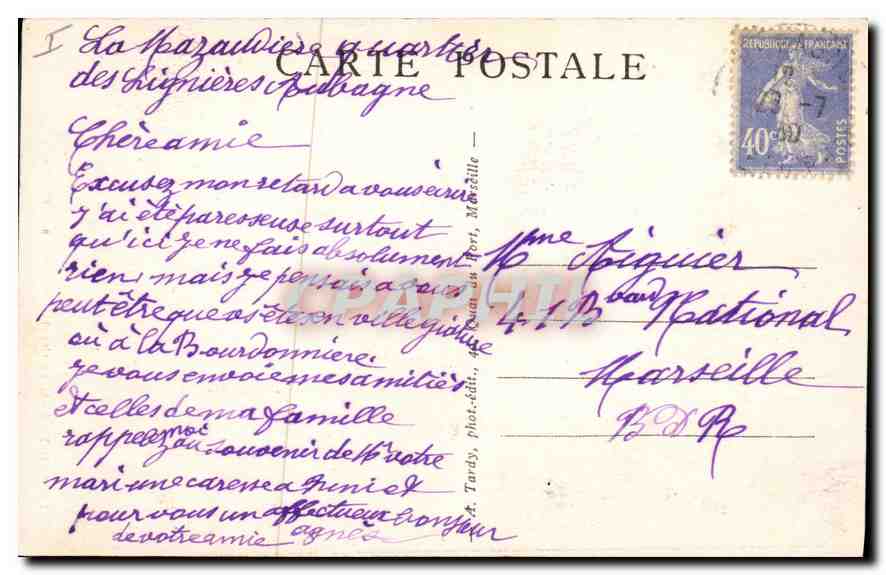 I
La Mazaudière quartier
des Lignières Aubagne
CARTE POSTALE
Chère amie
Excusez mon retard a vous écrire
j'ai été paresseuse surtout
qu'ici je ne fais absolument
rien, mais je pensais a vous
peut être que vs êtes en villegiature
où à la Bourdonnière.
je vous envoie mes amitiés
et celles de ma famille
rappelez moi
au souvenir de Mr votre
mari une caresse a
pour vous un affectueux bonjour
de votre amie agnès
A. Tardy, phot.-édit., Quai du Port, Marseille
REPUBLIQUE FRANÇAISE
40c
POSTES
23 -7
Mme Aiguier
41 Bvard National
Marseille
B D R
CPAPHIL